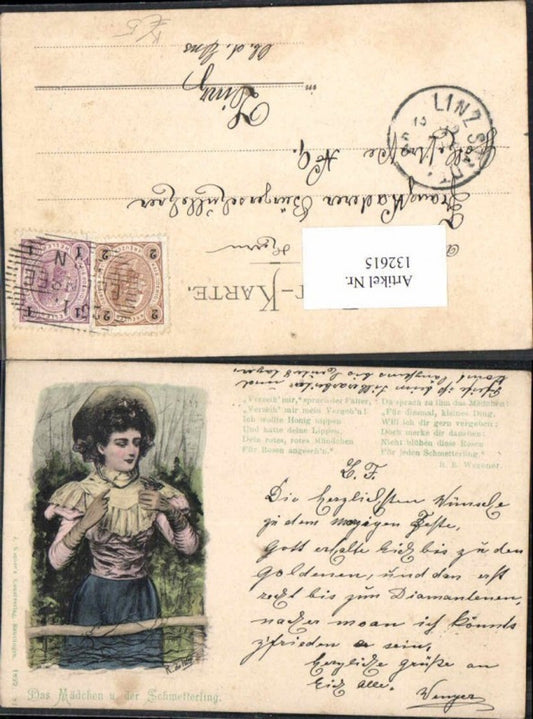 Artikel Nr.
132615
T-KARTE.
Herrn
Franz Kaderer Bürgerschullehrer
N 9.
in Linz
a. d. Donau
LINZ STADT
1 1
2 2
„Verzeih' mir," sprach der Falter,
„Verzeih' mir mein Vergeh'n!
Ich wollte Honig nippen
Und hatte deine Lippen,
Dein rotes, rotes Mündchen
Für Rosen angeseh'n."
Da sprach zu ihm das Mädchen:
„Für diesmal, kleines Ding,
Will ich dir gern vergeben;
Doch merke dir daneben:
Nicht blühen diese Rosen
Für jeden Schmetterling."
R. E. Wegener.
L. F.
Die herzlichsten Wünsche
zu dem morgigen Feste,
Gott erhalte Euch bis zu den
Goldenen, und dan erst
recht bis zum Diamantenen,
nacher moan ich könnts
zfrieden a sein.
Herzliche grüße an
Eich alle. Wenger
Das Mädchen u. der Schmetterling.